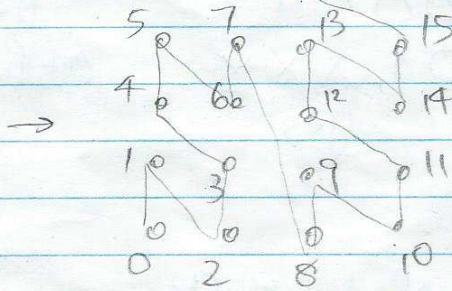 5 7 13 15
4 6 12 14
→
1 3 9 11
0 2 8 10